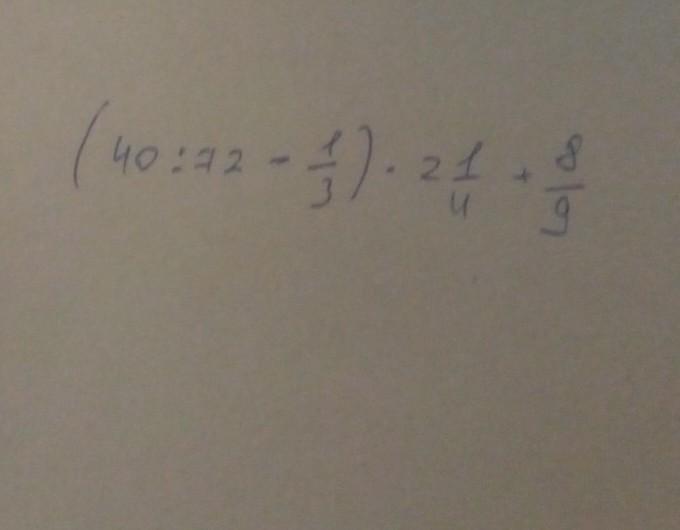 (40:72 - 1/3) · 2 1/4 + 8/9